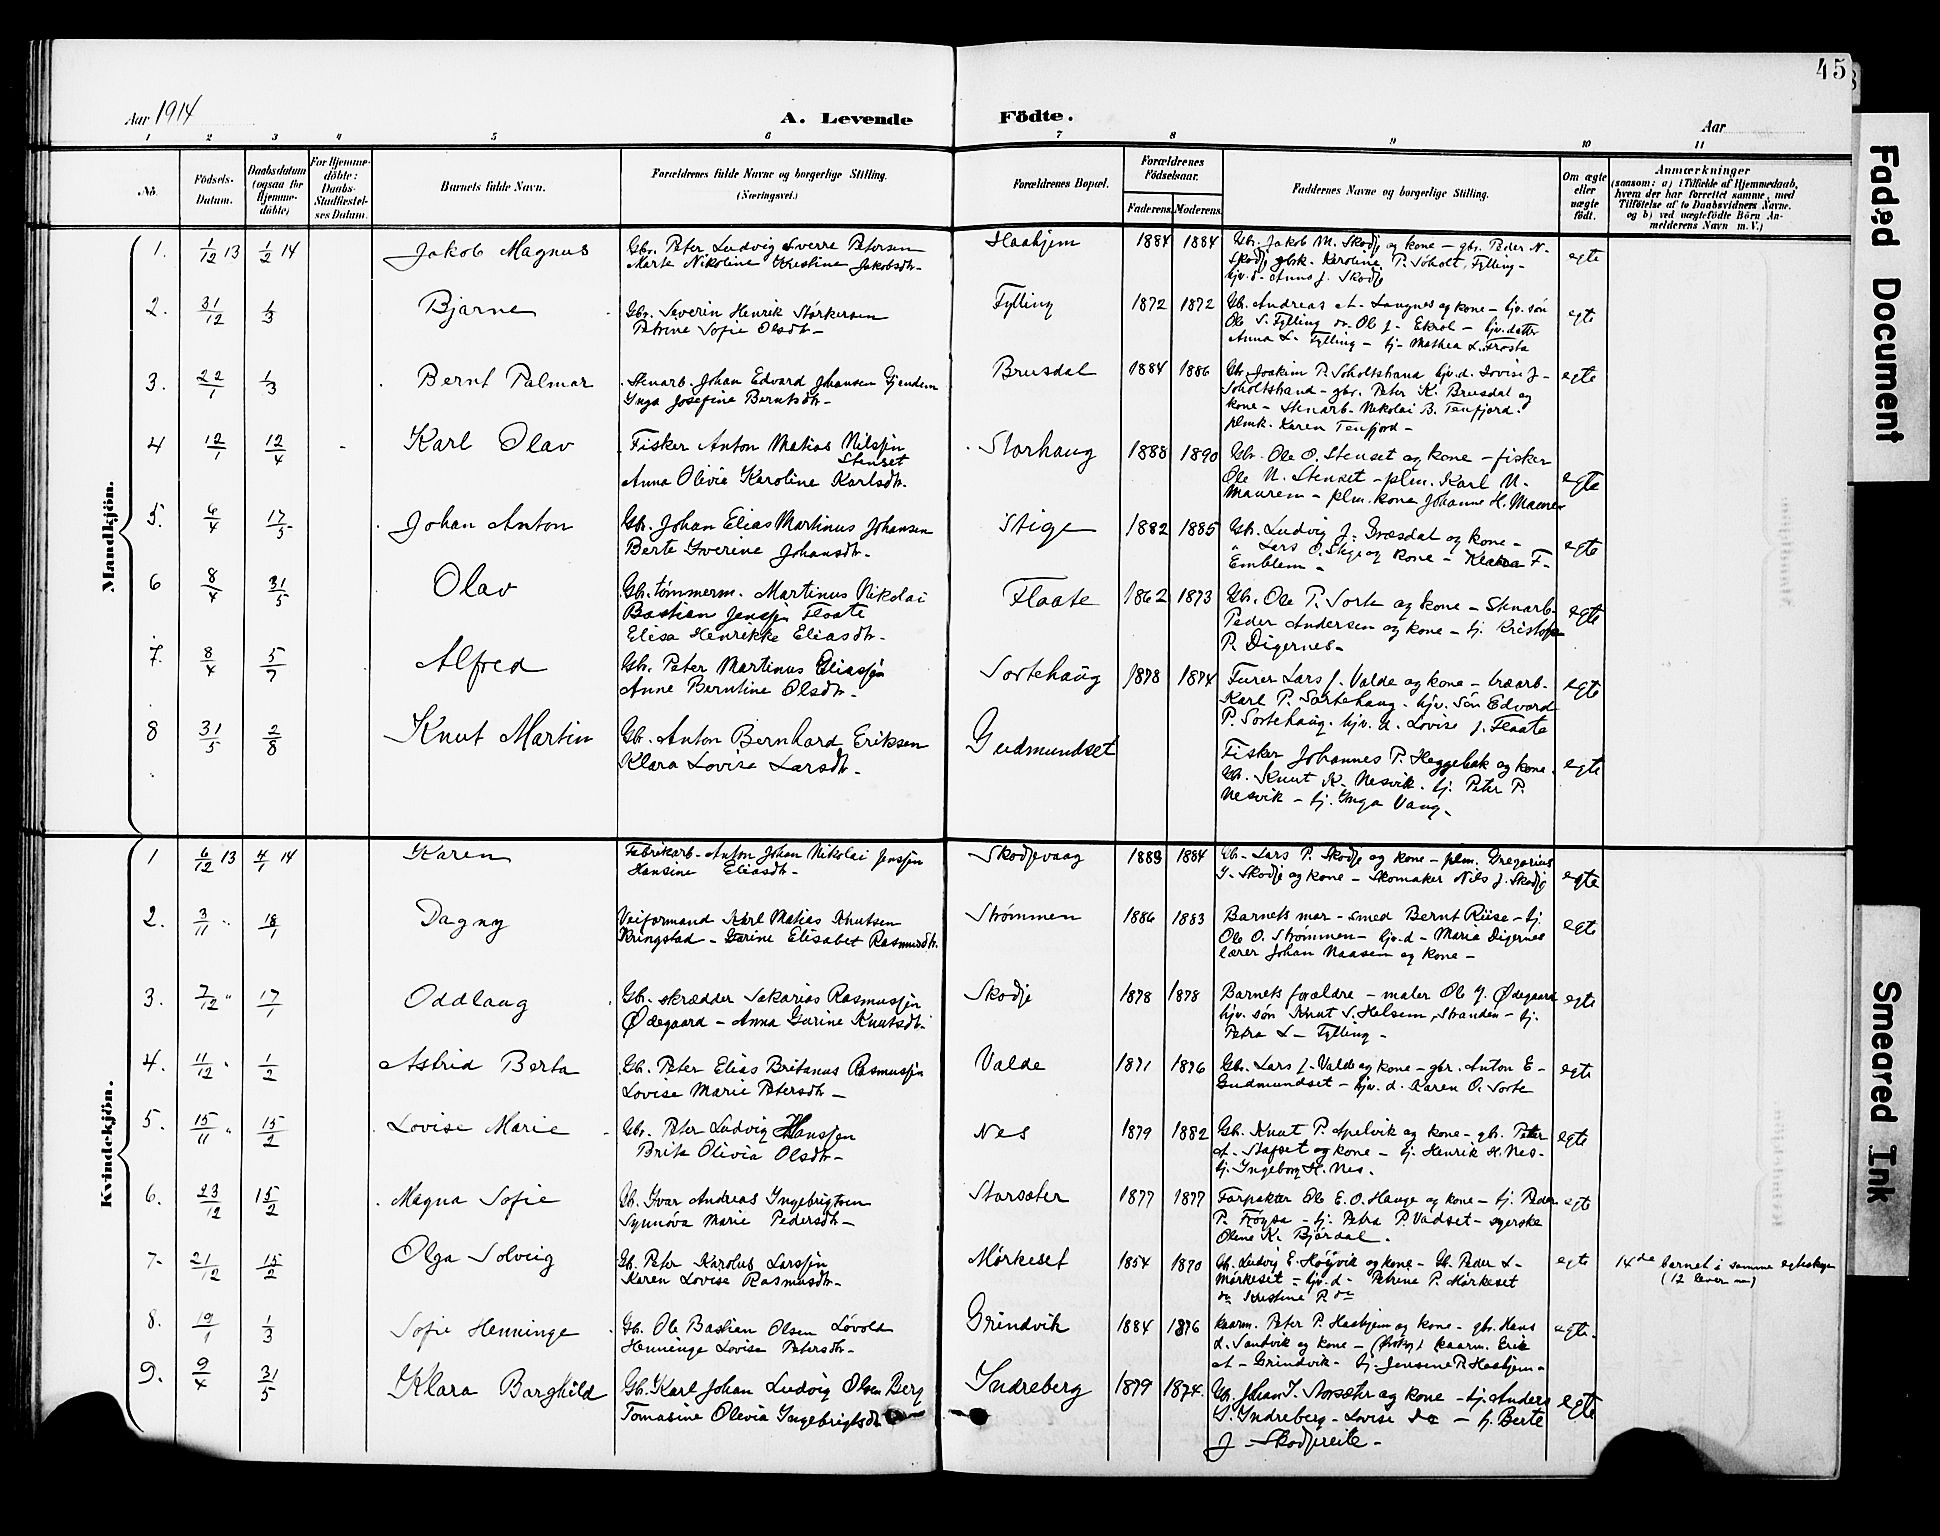 45
Aar 1914
A. Levende Födte.
Aar
1 2 3 4 5 6 7 8 9 10 11
No.
Födsels-Datum.
Daabsdatum (ogsaa for Hjemme-döbte)
For Hjemme-döbte: Daabs-Stadfæstel-ses Datum.
Barnets fulde Navn.
Forældrenes fulde Navne og borgerlige Stilling.
(Næringsvei.)
Forældrenes Bopæl.
Forældrenes Födselsaar.
Faderens. Moderens.
Faddernes Navne og borgerlige Stilling.
Om ægte eller uægte født.
Anmærkninger
(saasom: a) i Tilfælde af Hjemmedaab,
hvem der har forrettet samme, med
Tilföielse af to Daabsvidners Navne.
og b) ved uægtefödte Börn An-
melderens Navn m.V.)
Mandkjön.
1. 1/12 13 1/2 14 Jakob Magnus
Gbr. Peter Ludvig Sverre Petersen
Marte Nikoline Kristine Jakobsdtr.
Haahjem 1884 1884
Gbr. Jakob M. Skodje og kone - gbr. Peder N.
Skodje gbsk. Karoline P. Soholt, Fylling -
hjv. d. Anna J. Skodje
egte
2. 31/12 1/3 Bjarne
Gbr. Severin Henrik Størkersen
Petrine Sofie Olsdtr -
Fylling 1872 1872
Gb. Andreas A. Langnes og kone - hjv. søn
Ole S. Fylling Ole J. Ekrol - hjv. datter
Anna L. Fylling - tj. Mathea L. Frøsta
egte
3. 22/1 1/3 Bernt Palmar
Stenarb. Johan Edvard Johansen Gjendem
Inga Josefine Berntsdtr -
Brusdal 1884 1886
Gb. Joakim P. Soholtstrand hjv. d. Lovise J -
Soholtstrand - gbr. Peter K. Brusdal og
kone - Stenarb. Nikolai B. Tenfjord.
plmk. Karen Tenfjord -
egte
4 12/1 12/4 - Karl Olav
Fisker Anton Matias Nilssen
Stenset
Anna Olivia Karoline Karlsdtr.
Storhaug 1888 1890
Gb. Ole O. Stenset og kone - fisker
Ole N. Stenset - plm. Karl N.
Mauren - plm. kone Johanne H. Mauren
egte
5. 6/4 17/5 Johan Anton
Gb. Johan Elias Martinus Johansen
Berte Iverine Johansdtr.
Stige 1882 1885
Gb. Ludvig J. Dræsdal og kone -
" Lars O. Stige og kone - Klara F -
Emblem -
egte
6 8/4 31/5 Olav
Gb. tømmerm. Martinus Nikolai
Bastian Jenssen Flaate
Elisa Henrikke Eliasdtr -
Flaate 1862 1873
Gb. Ole P. Sorte og kone - Stenarb.
Peder Andersen og kone - tj. Kristofer
P. Digernes -
egte
7. 8/4 5/7 Alfred
Gb. Peter Martinus Eliassen
Anne Berntine Olsdtr -
Sortehaug 1878 1874
Furer Lars J. Valde og kone - træarb.
Karl P. Sortehaug. hjv. søn Edvard
P. Sortehaug. hjv. d. Lovise J. Flaate
egte
8 31/5 2/8 Knut Martin
Gb. Anton Bernhard Eriksen
Klara Lovise Larsdtr -
Gudmundset
Fisker Johannes P. Heggebak og kone.
Gb. Knut K. Nesvik. tj. Peter P.
Nesvik - tj. Inga Vang -
egte
Kvindekjön.
1 6/12 13 4/1 14 Karen
Fabrikarb. Anton Johan Nikolai Jenssen
Hansine Eliasdtr -
Skodjevaag 1883 1884
Gb. Lars P. Skodje og kone - plm. Gregorius
J. Skodje og kone - Skomaker Nils J. Skodje
egte
2. 3/11 " 18/1 Dagny
Veiformand Karl Matias Knutsen
Kringstad - Gurine Elisabet Rasmusdtr.
Strømmen 1886 1883
Barnets mor - smed Bernt Riise - tj.
Ole O. Strømmen - hjv. d - Maria Digernes
lærer Johan Naasen og kone -
egte
3. 7/12 " 17/1 Oddlaug
Gb. skrædder Sakarias Rasmussen
Ødegaard - Anna Gurine Knutsdtr.
Skodje 1878 1878
Barnets forældre - maler Ole J. Ødegaard
hjv. søn Knut S. Helsem, Stranden - tj.
Petra L - Fylling -
egte
4. 11/12 " 1/2 Astrid Berta
Gb. Peter Elias Britanus Rasmussen
Lovise Marie Petersdtr -
Valde 1871 1876
Gb. Lars J. Valde og kone - gbr. Anton E -
Gudmundset - hjv. d. Karen O. Sorte
egte
5. 15/11 " 15/2 Lovise Marie
Gb. Peter Ludvig Hanssen
Brite Olivia Olsdtr -
Nes 1879 1882
Gb. Knut P. Apelvik og kone - gb. Peter
A. Stafset og kone - tj. Henrik H. Nes -
tj. Ingeborg H. Nes.
egte
6. 23/12 15/2 Magna Sofie
Gb. Ivar Andreas Ingebrigtsen
Synnøva Marie Pedersdtr -
Storsæter 1877 1877
Forpakter Ole E. O. Hauge og kone - tj. Peder
P. Frøysa - tj. Petra P. Vadset - syerske
Oline K. Bjørdal.
egte
7. 21/12 15/2 Olga Solveig
Gb. Peter Karolus Larssen
Karen Lovise Rasmusdtr -
Mørkeset 1854 1870
Gb. Ludvig E. Høgsvik og kone - Gb. Peder L -
Mørkeset - hjv. d - Petrine P. Mørkeset
do Kristine P. do
egte
14de barnet i samme egteskap
(12 lever nu)
8. 19/1 1/3 Sofie Henninge
Gb. Ole Bastian Olsen Løvold
Henninge Lovise Petersdtr -
Grindvik 1884 1876
kaarm. Peter P. Haahjem og kone - gbr. Hans
L. Sandvik og kone - kaarm. Erik
A - Grindvik - tj. Jensine P. Haahjem -
egte.
9. 9/4 31/5 Klara Borghild
Gb. Karl Johan Ludvig Olsen Berg
Tomasine Olevia Ingebrigtsdtr
Indreberg 1879 1874.
Gb. Johan I. Storsæter og kone - tj. Anders
S. Indreberg - Lovise do - tj. Berte
J - Skodjereite -
egte
Faded Document
Smeared Ink